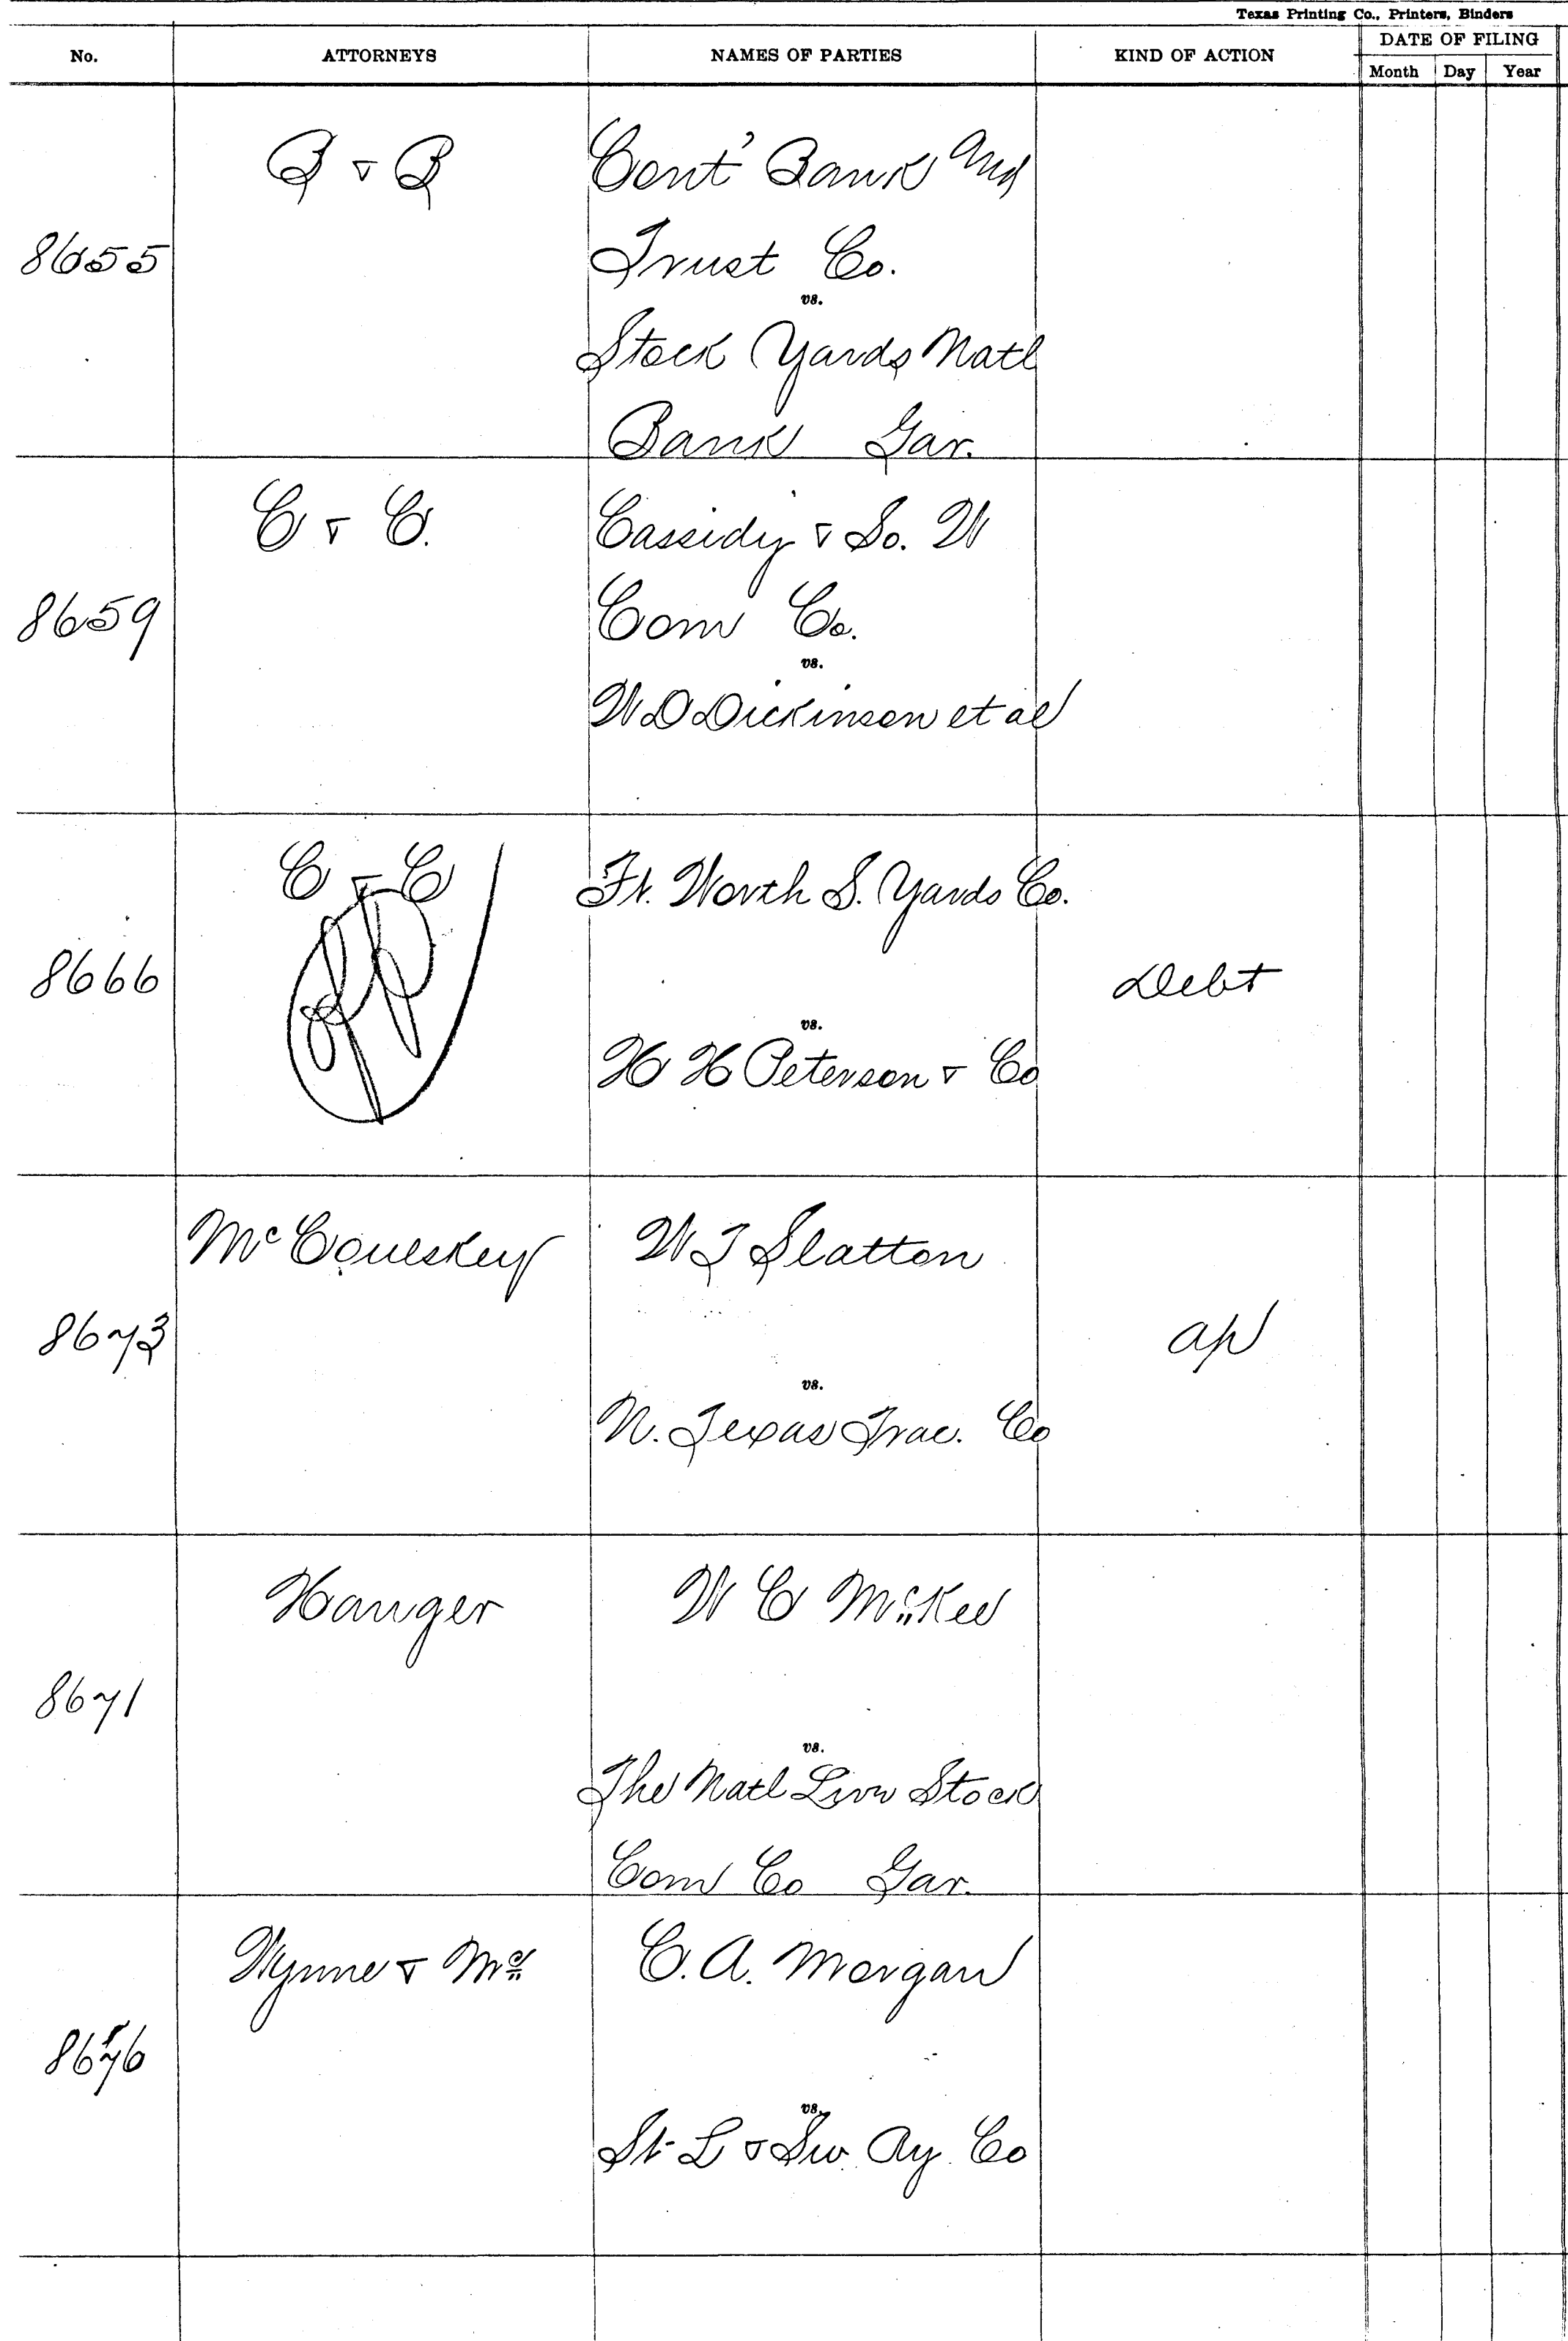 Texas Printing Co., Printers, Binders
No. ATTORNEYS NAMES OF PARTIES KIND OF ACTION DATE OF FILING
Month Day Year
B & B Cont' Bank and
8655 Trust Co.
vs.
Stock Yards Natl
Bank Gar.
C & C. Cassidy & So. W
8659 Com Co.
vs.
W D Dickinson et al
C & C Ft. Worth S. Yards Co.
8666 Debt
vs.
H H Peterson & Co
W T Slatton
8673 ap
vs.
N. Texas Trac. Co
Hanger W C McKee
8671
vs.
The Natl Live Stock
Com Co Gar.
Wynne & Mc C. A. Morgan
vs.
St L & Sw Ry Co